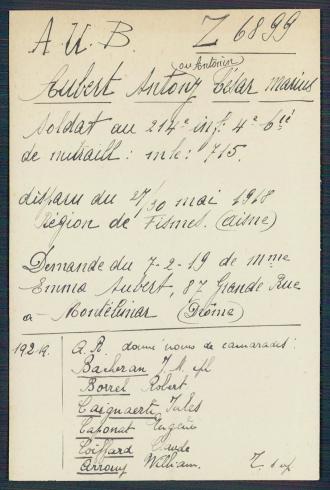 A.U.B. Z 6899
ou Antonin
Aubert Antony César Marius
Soldat au 214e inf. 4e Cie
de mitraill: mle: 715.
disparu du 27/30 mai 1918
Région de Fismes. (Aisne)
Demande du 7-2-19 de Mme
Emma Aubert, 87 Grande Rue
a Montélimar (Drôme)
A.R. donné noms de camarades:
Bacheran J. M.
Borrel Robert
Caignaert Jules
Caponat Eugène
Coiffard Claude
Arrouy William.